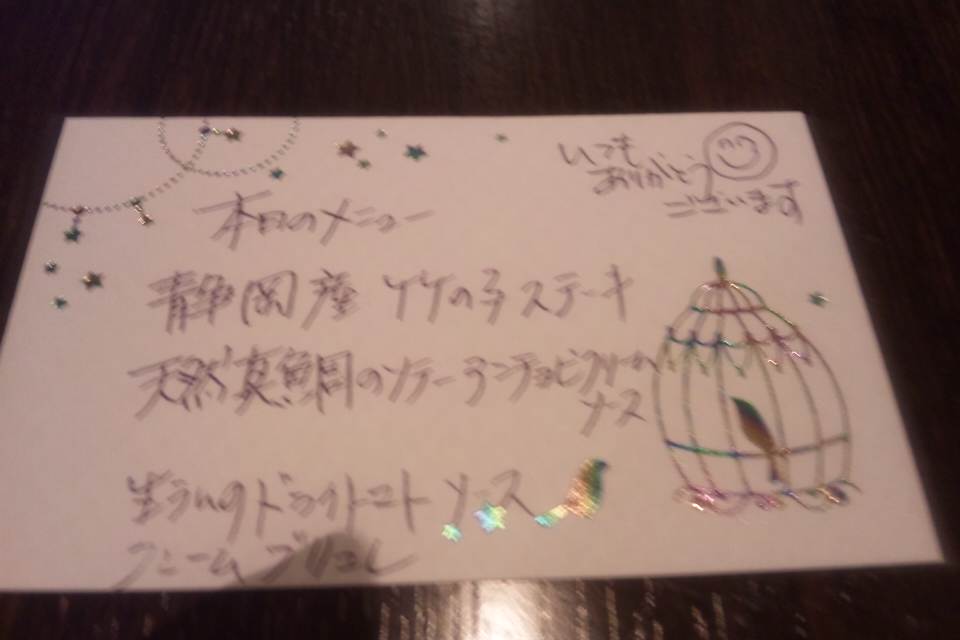 いつも
ありがとう
ございます
本日のメニュー
静岡産 竹の子ステーキ
天然真鯛のソテー アンチョビクリーム
ソース
ドライトマト ソース
ブリュレ